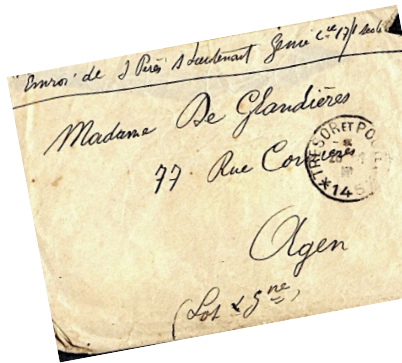 Envoi de J Pérès S Lieutenant Génie Cie 17/1
Madame De Glandières
77 Rue
Agen
(Lot & Gne)
TRESOR ET POSTES
*145